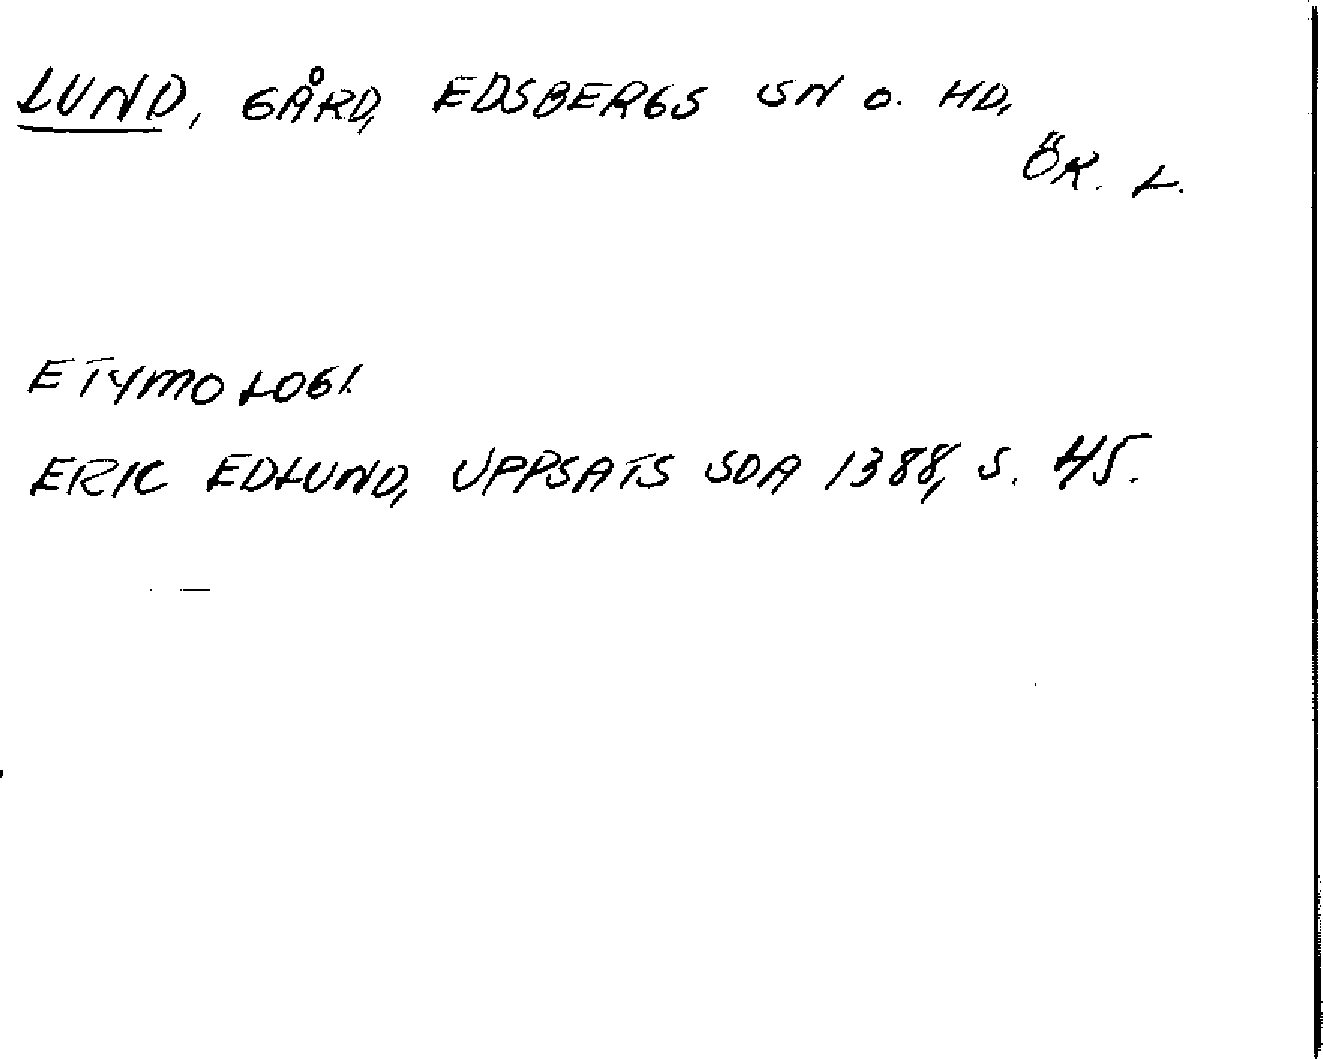 LUND, GÅRD, EDSBERGS SN O. HD,
ÖR. L.
ETYMOLOGI.
ERIC EDLUND, UPPSATS SOA 1388, S. 45.